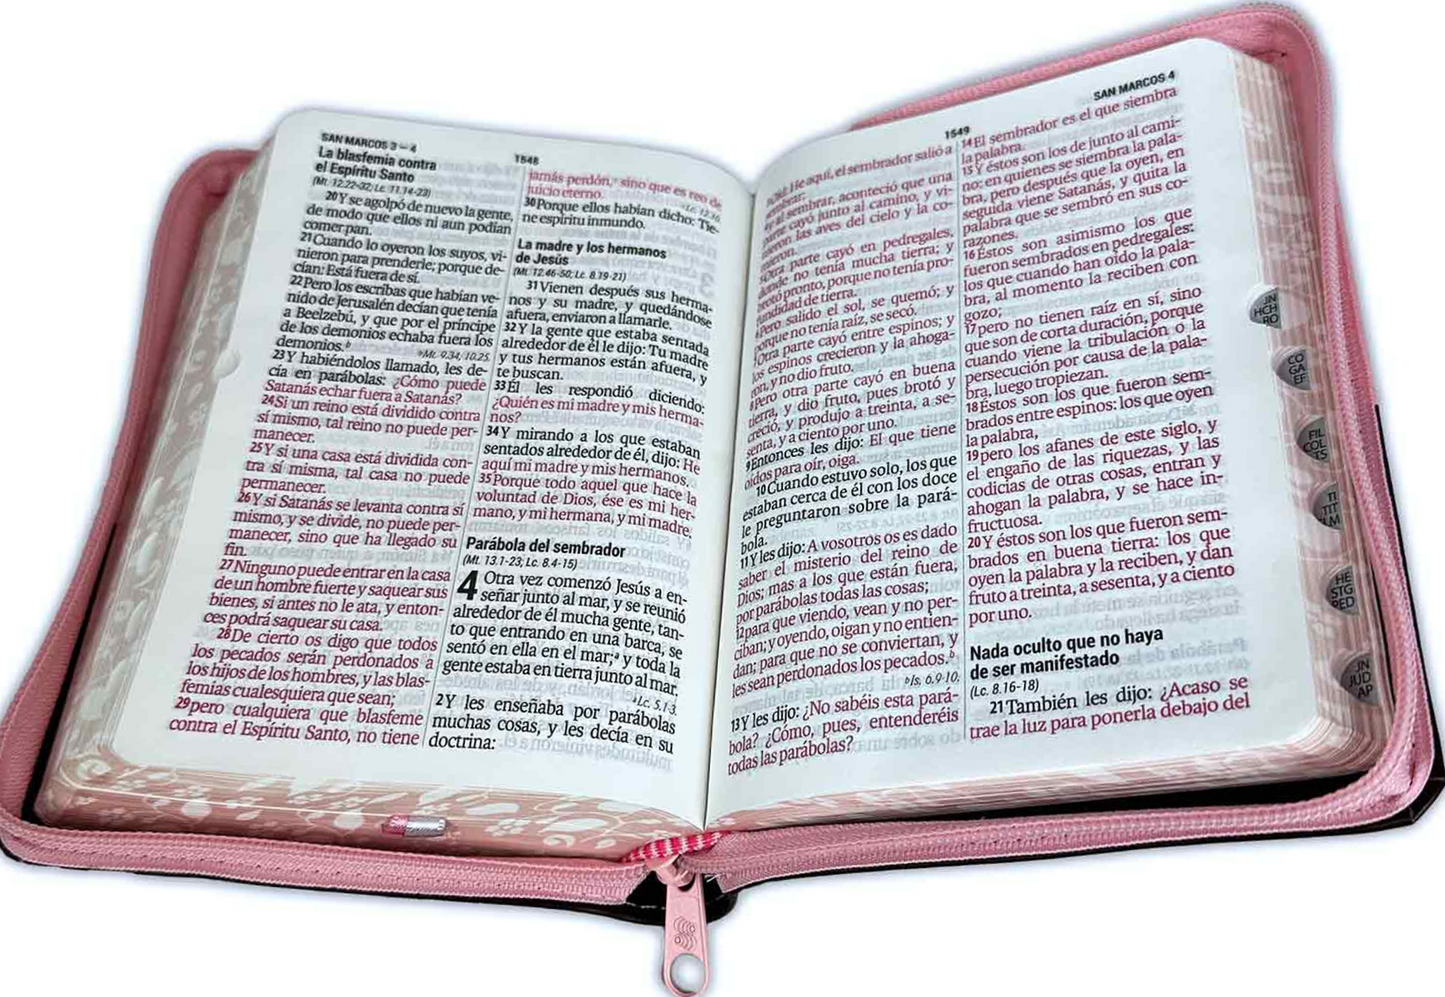 SAN MARCOS 3 — 4
1548
La blasfemia contra
el Espíritu Santo
(Mt. 12.22-32; Lc. 11.14-23)
20Y se agolpó de nuevo la gente,
de modo que ellos ni aun podían
comer pan.
21Cuando lo oyeron los suyos, vi-
nieron para prenderle; porque de-
cían: Está fuera de sí.
22Pero los escribas que habían ve-
nido de Jerusalén decían que tenía
a Beelzebú, y que por el príncipe
de los demonios echaba fuera los
demonios.b
bMt. 9.34; 10.25.
23Y habiéndolos llamado, les de-
cía en parábolas: ¿Cómo puede
Satanás echar fuera a Satanás?
24Si un reino está dividido contra
sí mismo, tal reino no puede per-
manecer.
25Y si una casa está dividida con-
tra sí misma, tal casa no puede
permanecer.
26Y si Satanás se levanta contra sí
mismo, y se divide, no puede per-
manecer, sino que ha llegado su
fin.
27Ninguno puede entrar en la casa
de un hombre fuerte y saquear sus
bienes, si antes no le ata, y enton-
ces podrá saquear su casa.
28De cierto os digo que todos
los pecados serán perdonados a
los hijos de los hombres, y las blas-
femias cualesquiera que sean;
29pero cualquiera que blasfeme
contra el Espíritu Santo, no tiene
jamás perdón,c sino que es reo de
juicio eterno.
cLc. 12.10.
30Porque ellos habían dicho: Tie-
ne espíritu inmundo.
La madre y los hermanos
de Jesús
(Mt. 12.46-50; Lc. 8.19-21)
31Vienen después sus herma-
nos y su madre, y quedándose
afuera, enviaron a llamarle.
32Y la gente que estaba sentada
alrededor de él le dijo: Tu madre
y tus hermanos están afuera, y
te buscan.
33Él les respondió diciendo:
¿Quién es mi madre y mis herma-
nos?
34Y mirando a los que estaban
sentados alrededor de él, dijo: He
aquí mi madre y mis hermanos.
35Porque todo aquel que hace la
voluntad de Dios, ése es mi her-
mano, y mi hermana, y mi madre.
Parábola del sembrador
(Mt. 13.1-23; Lc. 8.4-15)
4 Otra vez comenzó Jesús a en-
señar junto al mar, y se reunió
alrededor de él mucha gente, tan-
to que entrando en una barca, se
sentó en ella en el mar;a y toda la
gente estaba en tierra junto al mar.
aLc. 5.1-3.
2Y les enseñaba por parábolas
muchas cosas, y les decía en su
doctrina:
1549
SAN MARCOS 4
He aquí, el sembrador salió a
sembrar;
al sembrar, aconteció que una
parte cayó junto al camino, y vi-
nieron las aves del cielo y la co-
mieron.
Otra parte cayó en pedregales,
donde no tenía mucha tierra; y
brotó pronto, porque no tenía pro-
fundidad de tierra.
Pero salido el sol, se quemó; y
porque no tenía raíz, se secó.
Otra parte cayó entre espinos; y
los espinos crecieron y la ahoga-
ron, y no dio fruto.
8Pero otra parte cayó en buena
tierra, y dio fruto, pues brotó y
creció, y produjo a treinta, a se-
senta, y a ciento por uno.
9Entonces les dijo: El que tiene
oídos para oír, oiga.
10Cuando estuvo solo, los que
estaban cerca de él con los doce
le preguntaron sobre la pará-
bola.
11Y les dijo: A vosotros os es dado
saber el misterio del reino de
Dios; mas a los que están fuera,
por parábolas todas las cosas;
12para que viendo, vean y no per-
ciban; y oyendo, oigan y no entien-
dan; para que no se conviertan, y
les sean perdonados los pecados.b
bIs. 6.9-10.
13Y les dijo: ¿No sabéis esta pará-
bola? ¿Cómo, pues, entenderéis
todas las parábolas?
14El sembrador es el que siembra
la palabra.
15Y éstos son los de junto al cami-
no: en quienes se siembra la pala-
bra, pero después que la oyen, en
seguida viene Satanás, y quita la
palabra que se sembró en sus co-
razones.
16Éstos son asimismo los que
fueron sembrados en pedregales:
los que cuando han oído la pala-
bra, al momento la reciben con
gozo;
17pero no tienen raíz en sí, sino
que son de corta duración, porque
cuando viene la tribulación o la
persecución por causa de la pala-
bra, luego tropiezan.
18Éstos son los que fueron sem-
brados entre espinos: los que oyen
la palabra,
19pero los afanes de este siglo, y
el engaño de las riquezas, y las
codicias de otras cosas, entran y
ahogan la palabra, y se hace in-
fructuosa.
20Y éstos son los que fueron sem-
brados en buena tierra: los que
oyen la palabra y la reciben, y dan
fruto a treinta, a sesenta, y a ciento
por uno.
Nada oculto que no haya
de ser manifestado
(Lc. 8.16-18)
21También les dijo: ¿Acaso se
trae la luz para ponerla debajo del
JN
HCH
RO
CO
GA
EF
FIL
COL
TS
TI
TIT
LM
HE
STG
PED
JN
JUD
AP